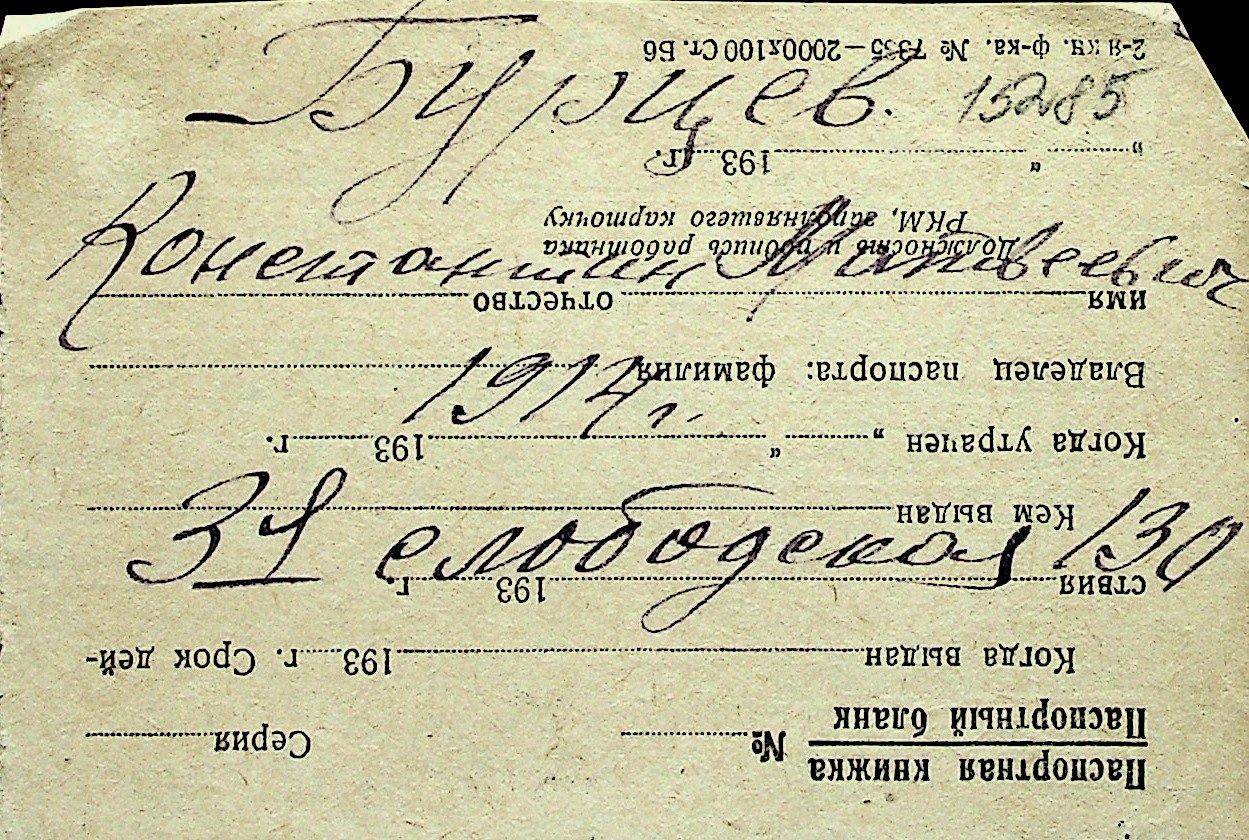 Бурцев. 15285
Константин Матвеевич
1914 г.
3я слободская 130
Паспортная книжка
Паспортный бланк № Серия
Когда выдан 193 г. Срок дей-
ствия 193 г.
Кем выдан
Когда утрачен „ “ 193 г.
Владелец паспорта: фамилия
имя отчество
Должность и подпись работника
РКМ, заполнявшего карточку
„ “ 193 г.
2-я кн. ф-ка. № 7335—2000х100 Ст. Б6